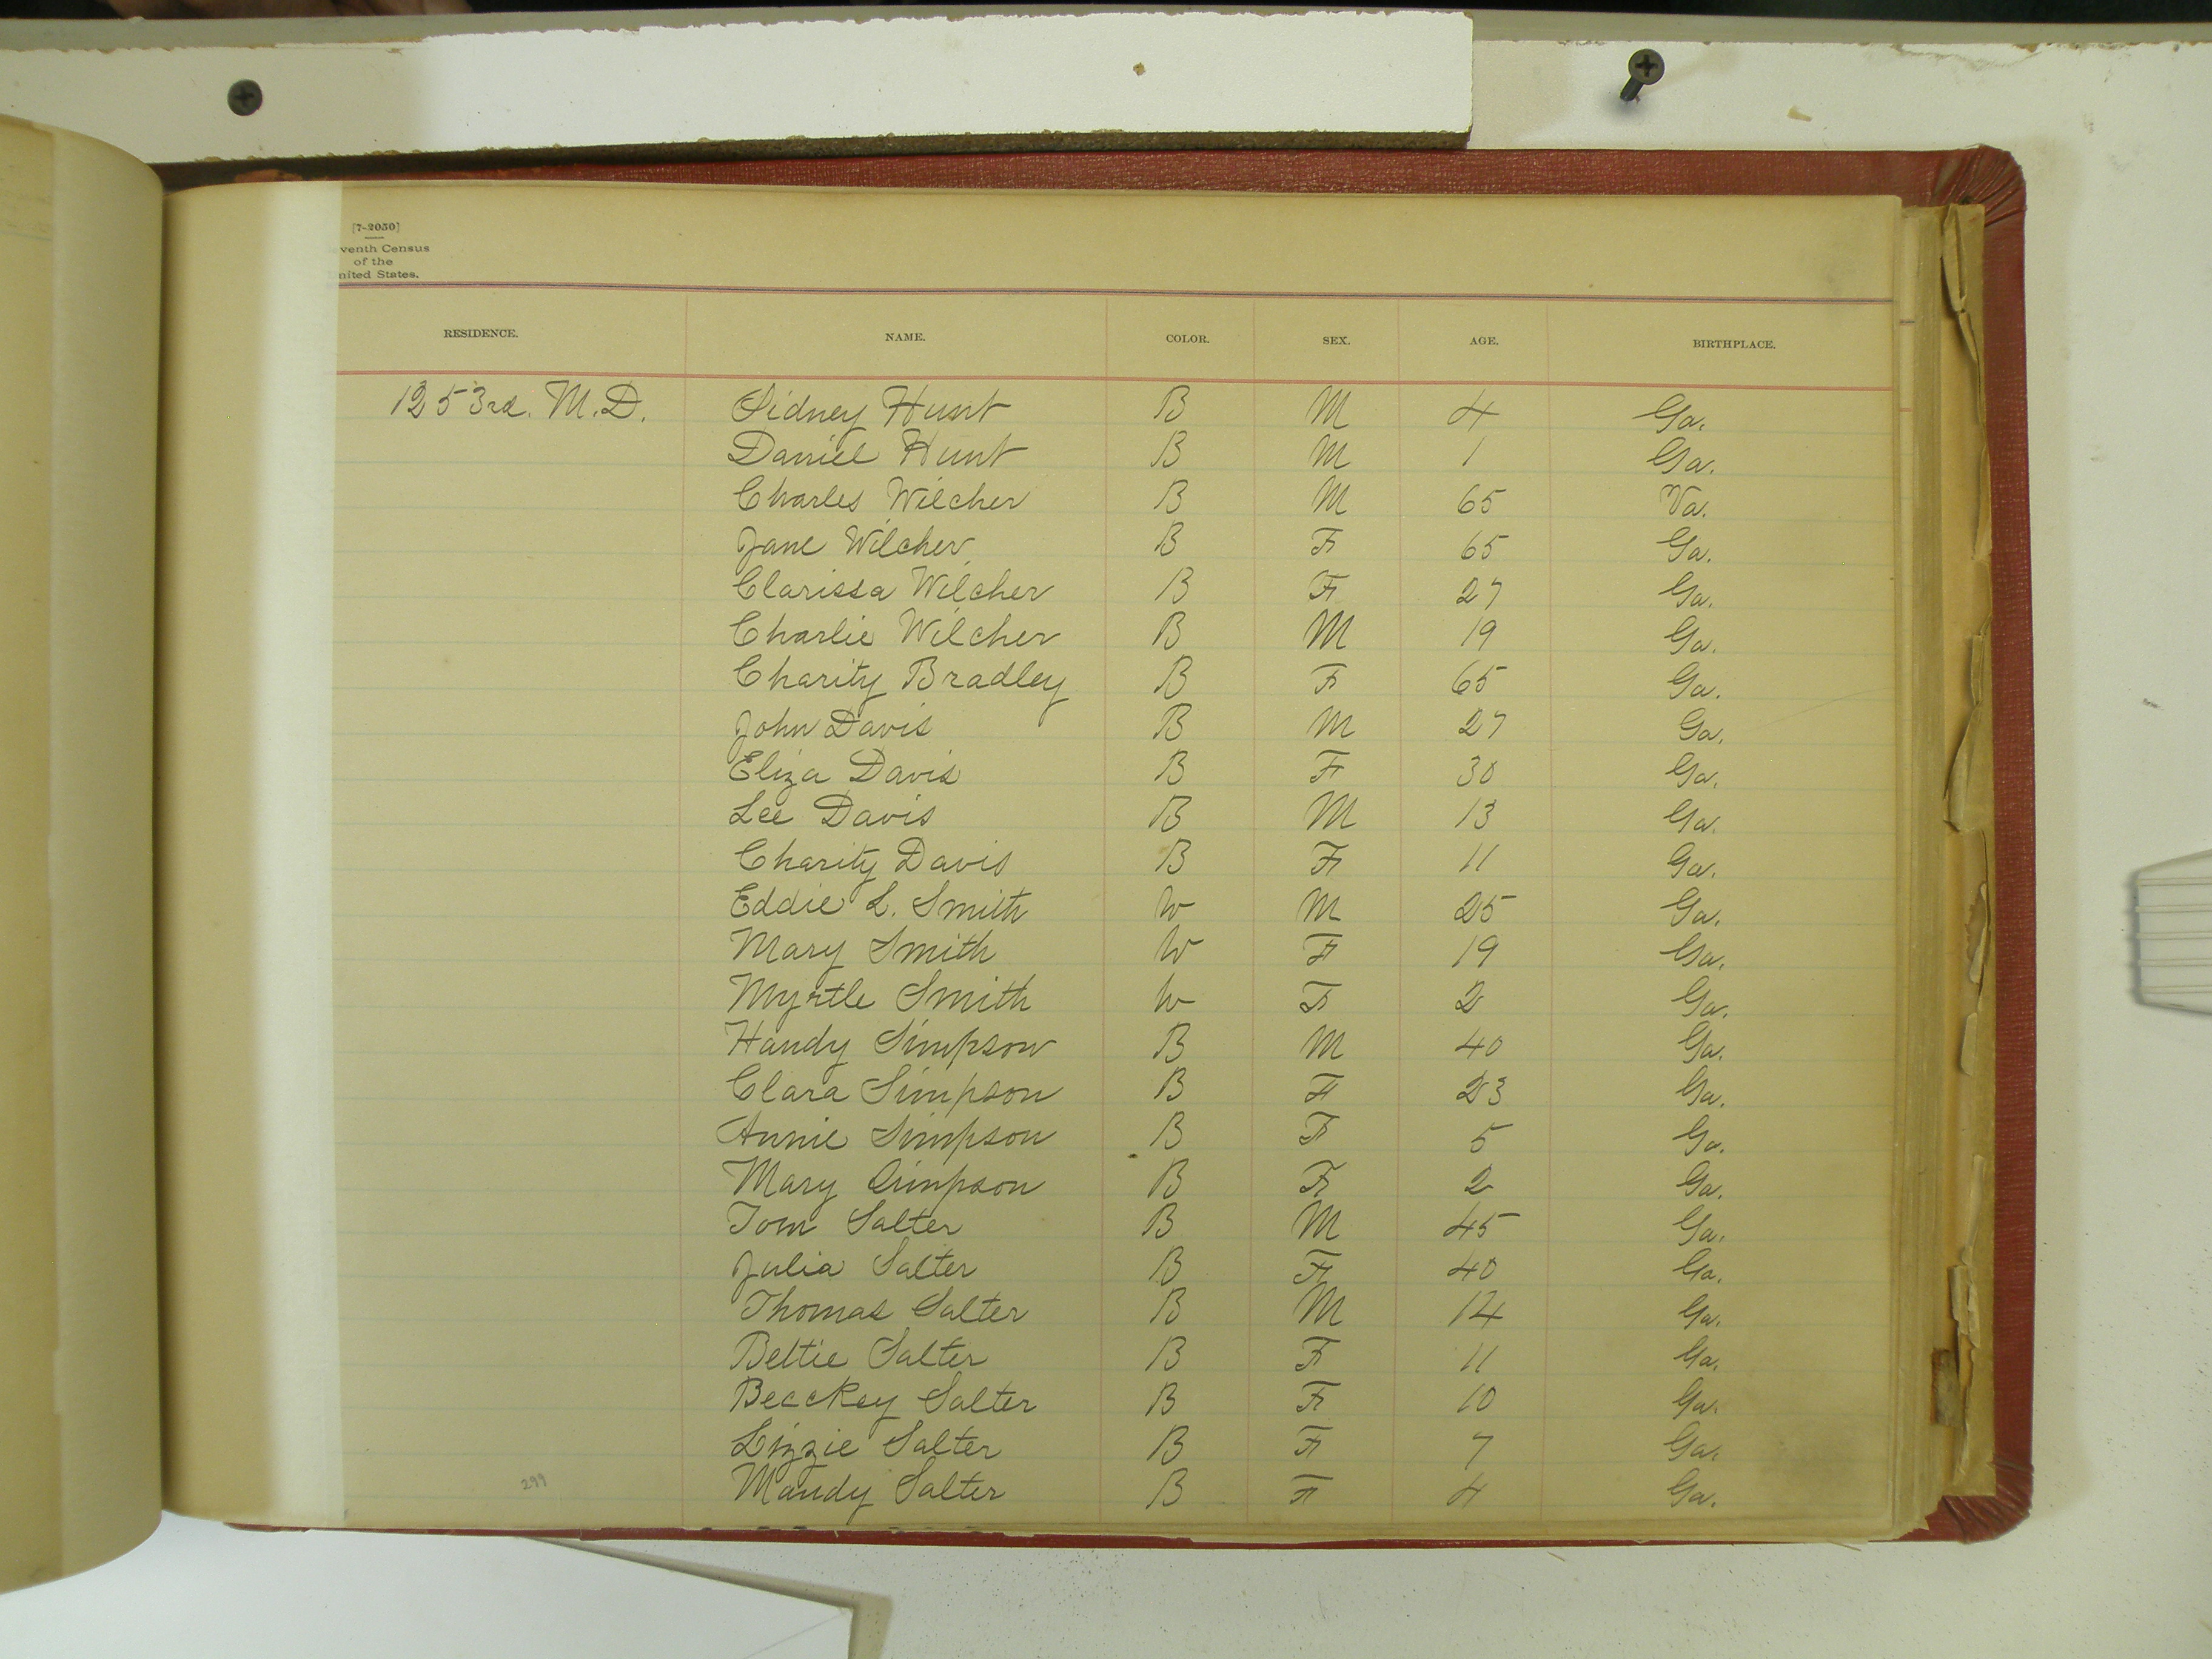 [7-2050]
venth Census
of the
nited States.
RESIDENCE. NAME. COLOR. SEX. AGE. BIRTHPLACE.
1253rd. M.D. Sidney Hunt B M 4 Ga.
Daniel Hunt B M 1 Ga.
Charles Wilcher B M 65 Va.
Jane Wilcher B F 65 Ga.
Clarissa Wilcher B F 27 Ga.
Charlie Wilcher B M 19 Ga.
Charity Bradley B F 65 Ga.
John Davis B M 27 Ga.
Eliza Davis B F 30 Ga.
Lee Davis B M 13 Ga.
Charity Davis B F 11 Ga.
Eddie L. Smith W M 25 Ga.
Mary Smith W F 19 Ga.
Myrtle Smith W F 2 Ga.
Handy Simpson B M 40 Ga.
Clara Simpson B F 23 Ga.
Annie Simpson B F 5 Ga.
Mary Simpson B F 2 Ga.
Tom Salter B M 45 Ga.
Julia Salter B F 40 Ga.
Thomas Salter B M 14 Ga.
Bettie Salter B F 11 Ga.
Becckey Salter B F 10 Ga.
Lizzie Salter B F 7 Ga.
Mandy Salter B F 4 Ga.
299